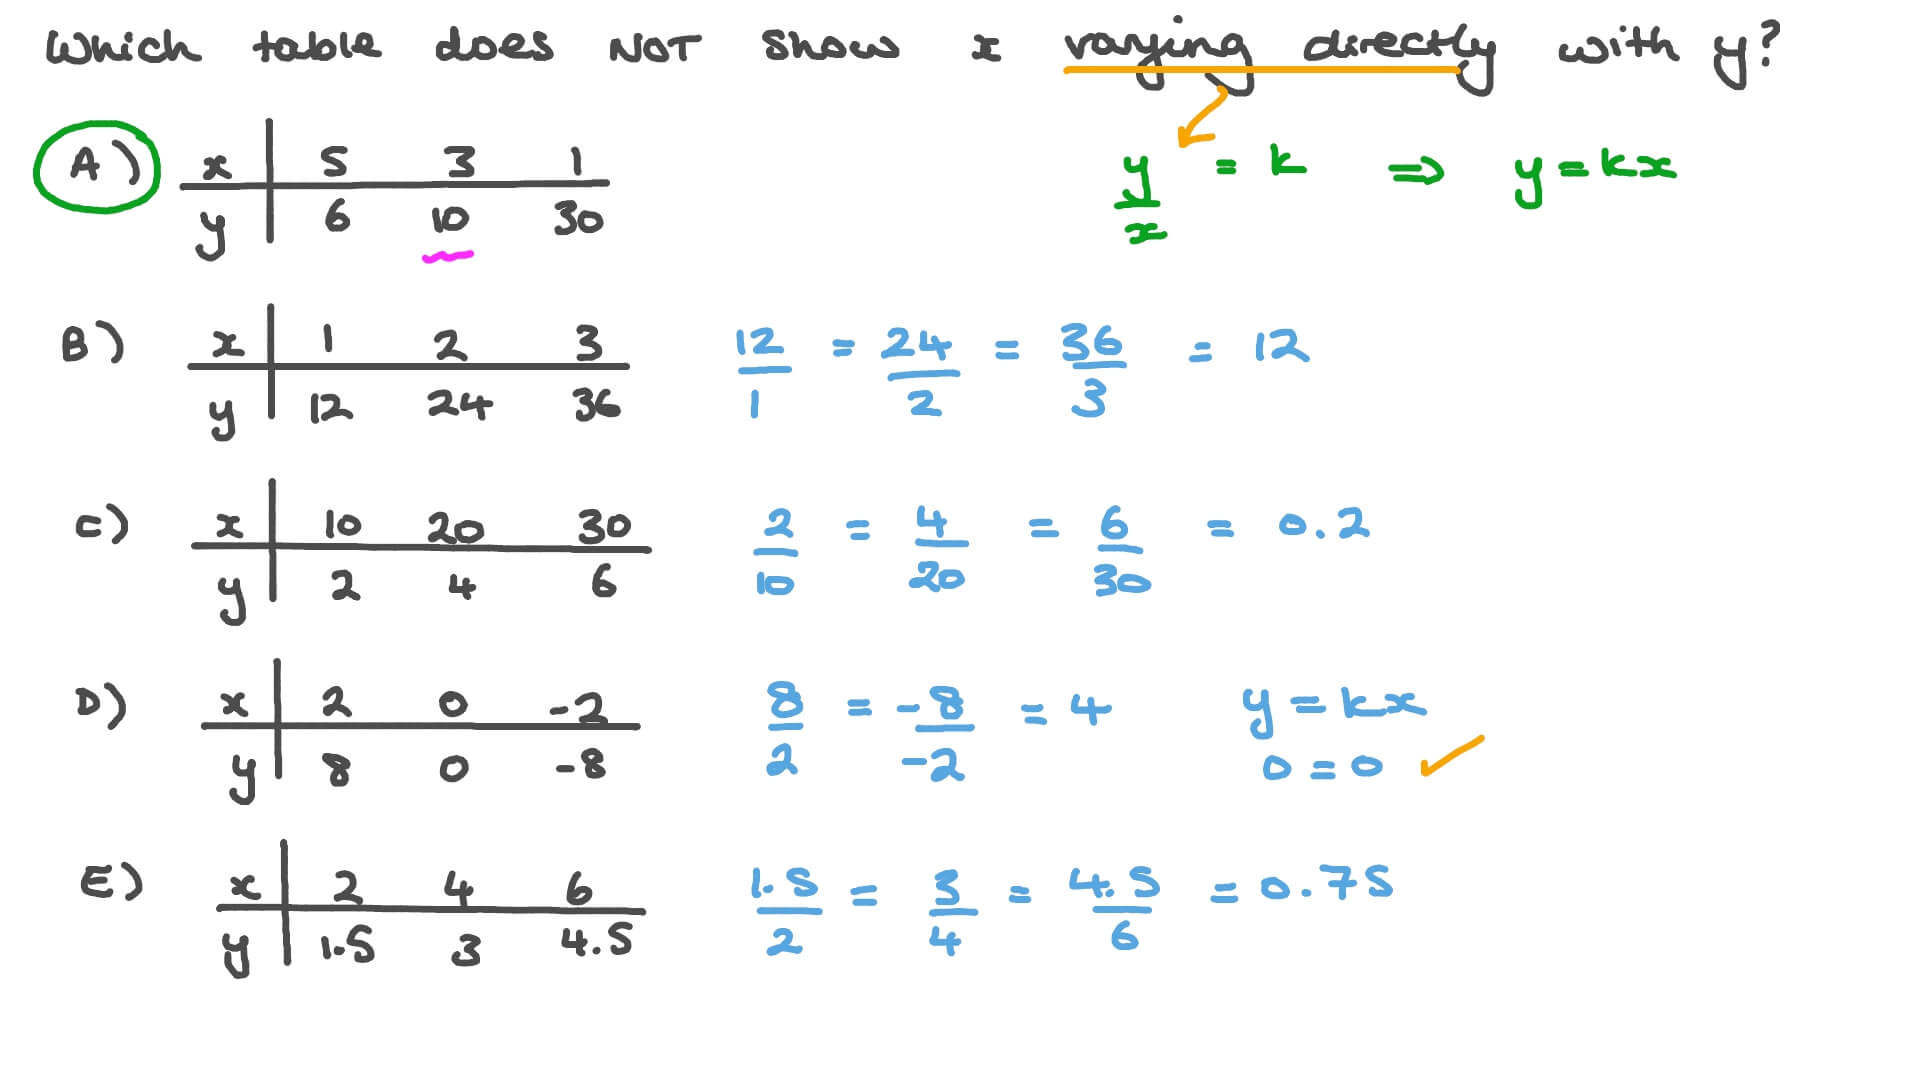 Which table does NOT show x varying directly with y?
A) x | 5 3 1
y | 6 10 30
y/x = k ⇒ y = kx
B) x | 1 2 3
y | 12 24 36
12/1 = 24/2 = 36/3 = 12
C) x | 10 20 30
y | 2 4 6
2/10 = 4/20 = 6/30 = 0.2
D) x | 2 0 -2
y | 8 0 -8
8/2 = -8/-2 = 4
y = kx
0 = 0 ✓
E) x | 2 4 6
y | 1.5 3 4.5
1.5/2 = 3/4 = 4.5/6 = 0.75